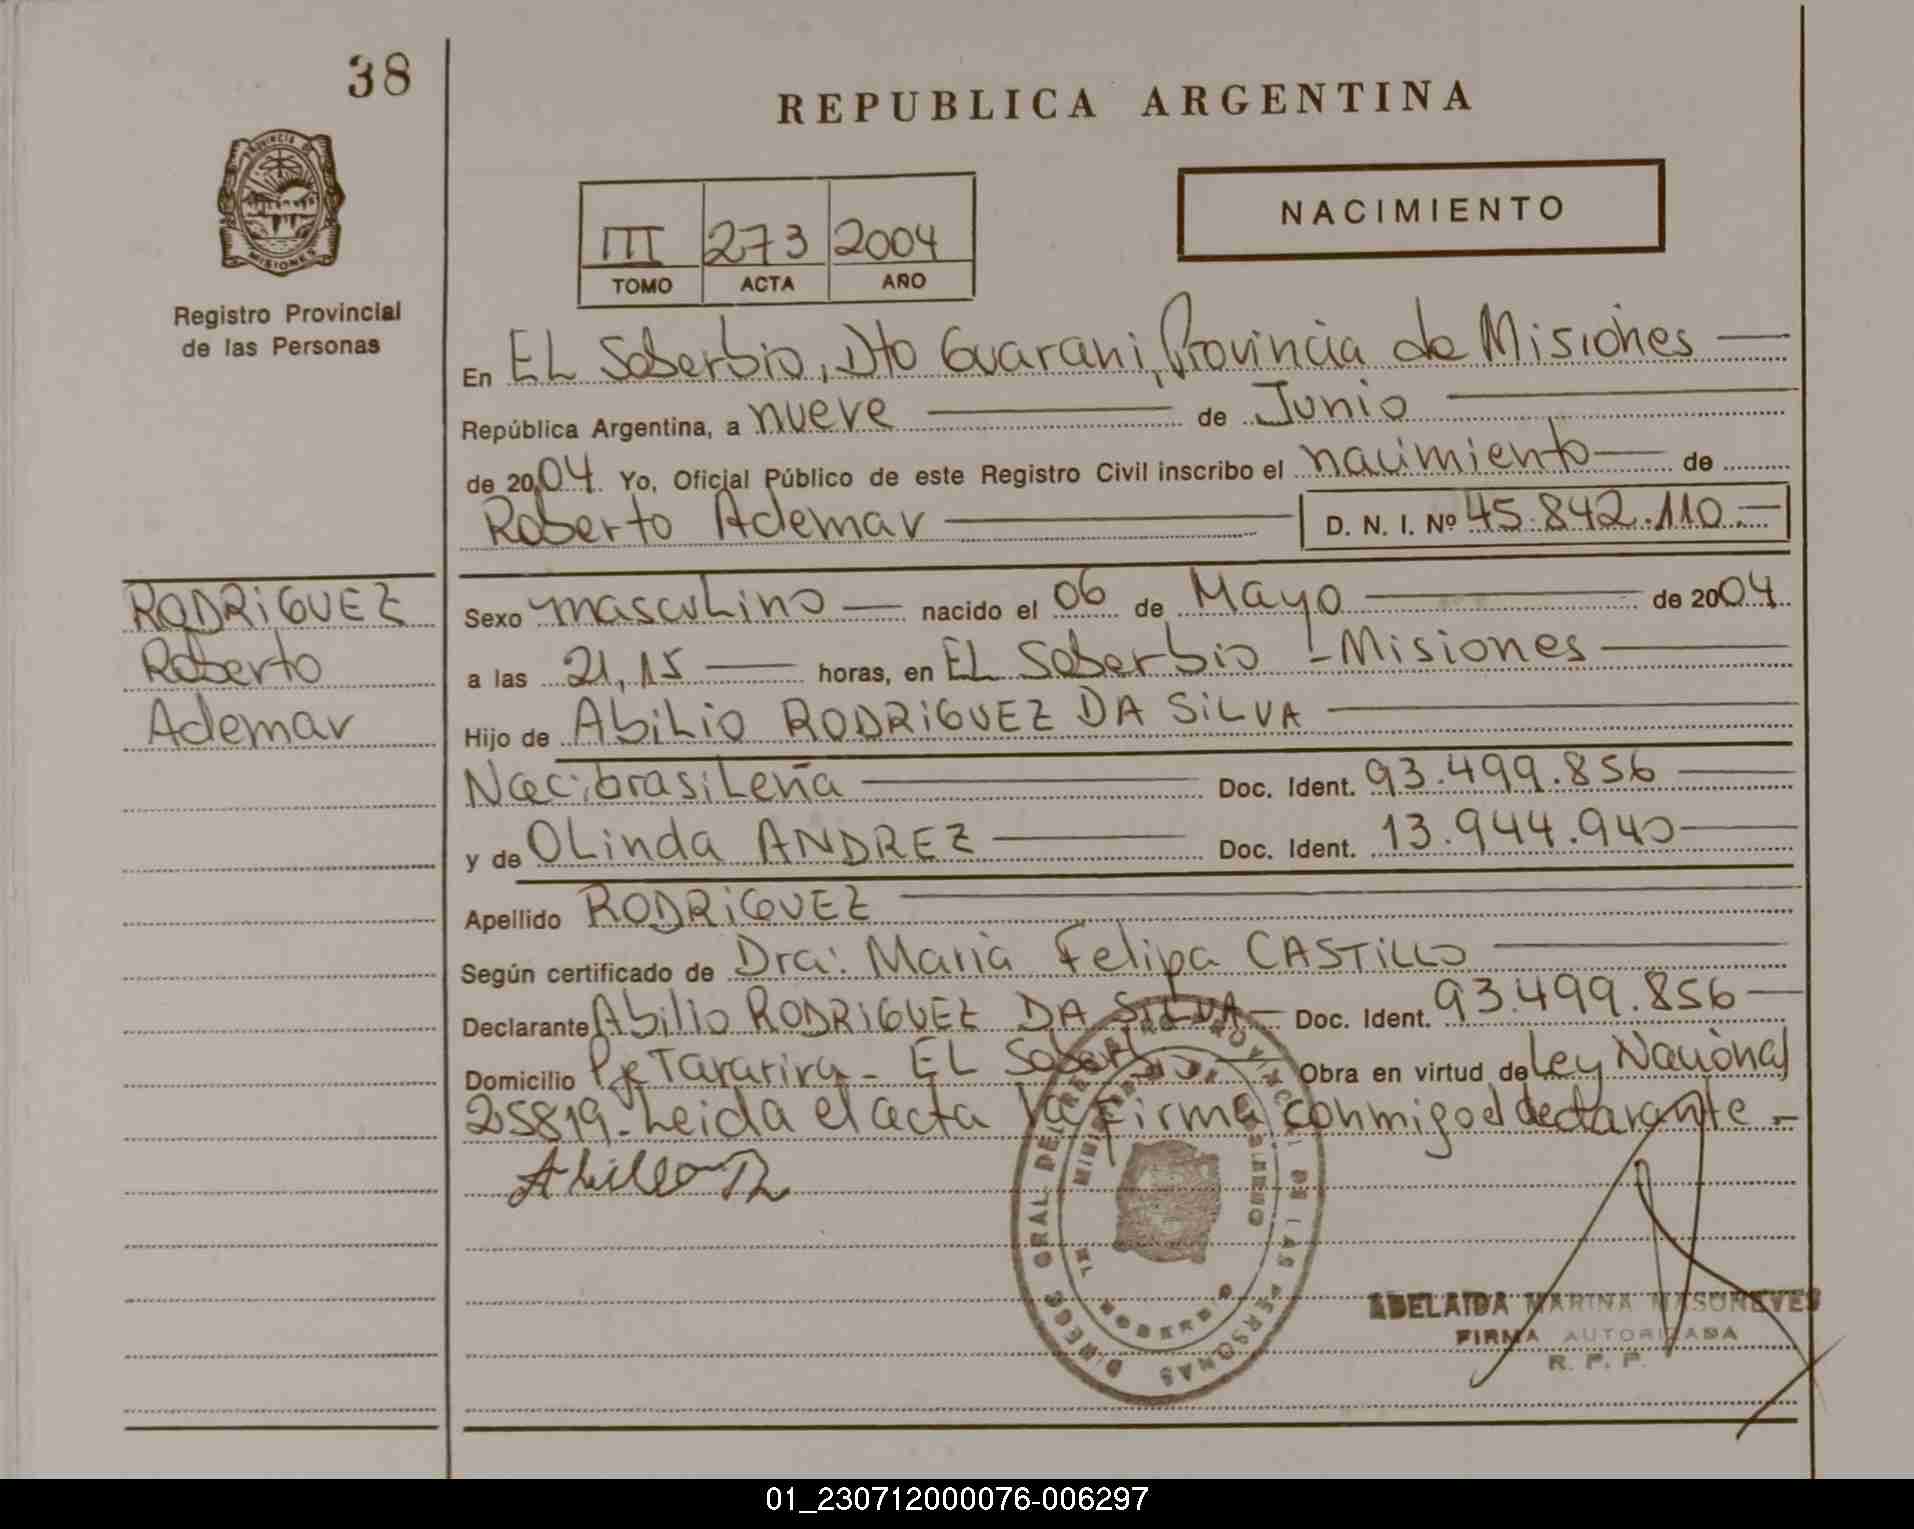 38
PROVINCIA DE
MISIONES
Registro Provincial
de las Personas
REPUBLICA ARGENTINA
NACIMIENTO
III 273 2004
TOMO ACTA AÑO
En EL Soberbio, Dto Guarani, Provincia de Misiones
República Argentina, a nueve de Junio
de 2004 Yo, Oficial Público de este Registro Civil inscribo el nacimiento de
Roberto Ademar D. N. I. Nº 45.842.110.-
RODRIGUEZ
Roberto
Ademar
Sexo masculino nacido el 06 de Mayo de 2004
a las 21,15 horas, en EL Soberbio - Misiones
Hijo de Abilio RODRIGUEZ DA SILVA
Nac: brasileña Doc. Ident. 93.499.856
y de Olinda ANDREZ Doc. Ident. 13.944.940
Apellido RODRIGUEZ
Según certificado de Dra: Maria Felipa CASTILLO
Declarante Abilio RODRIGUEZ DA SILVA - Doc. Ident. 93.499.856
Domicilio Pje Tararira - EL Soberbio Obra en virtud de Ley Nacional
25819 - Leida el acta la firma conmigo el declarante -
ADELAIDA MARINA MASONEVES
FIRMA AUTORIZADA
R. P. P.
01_230712000076-006297